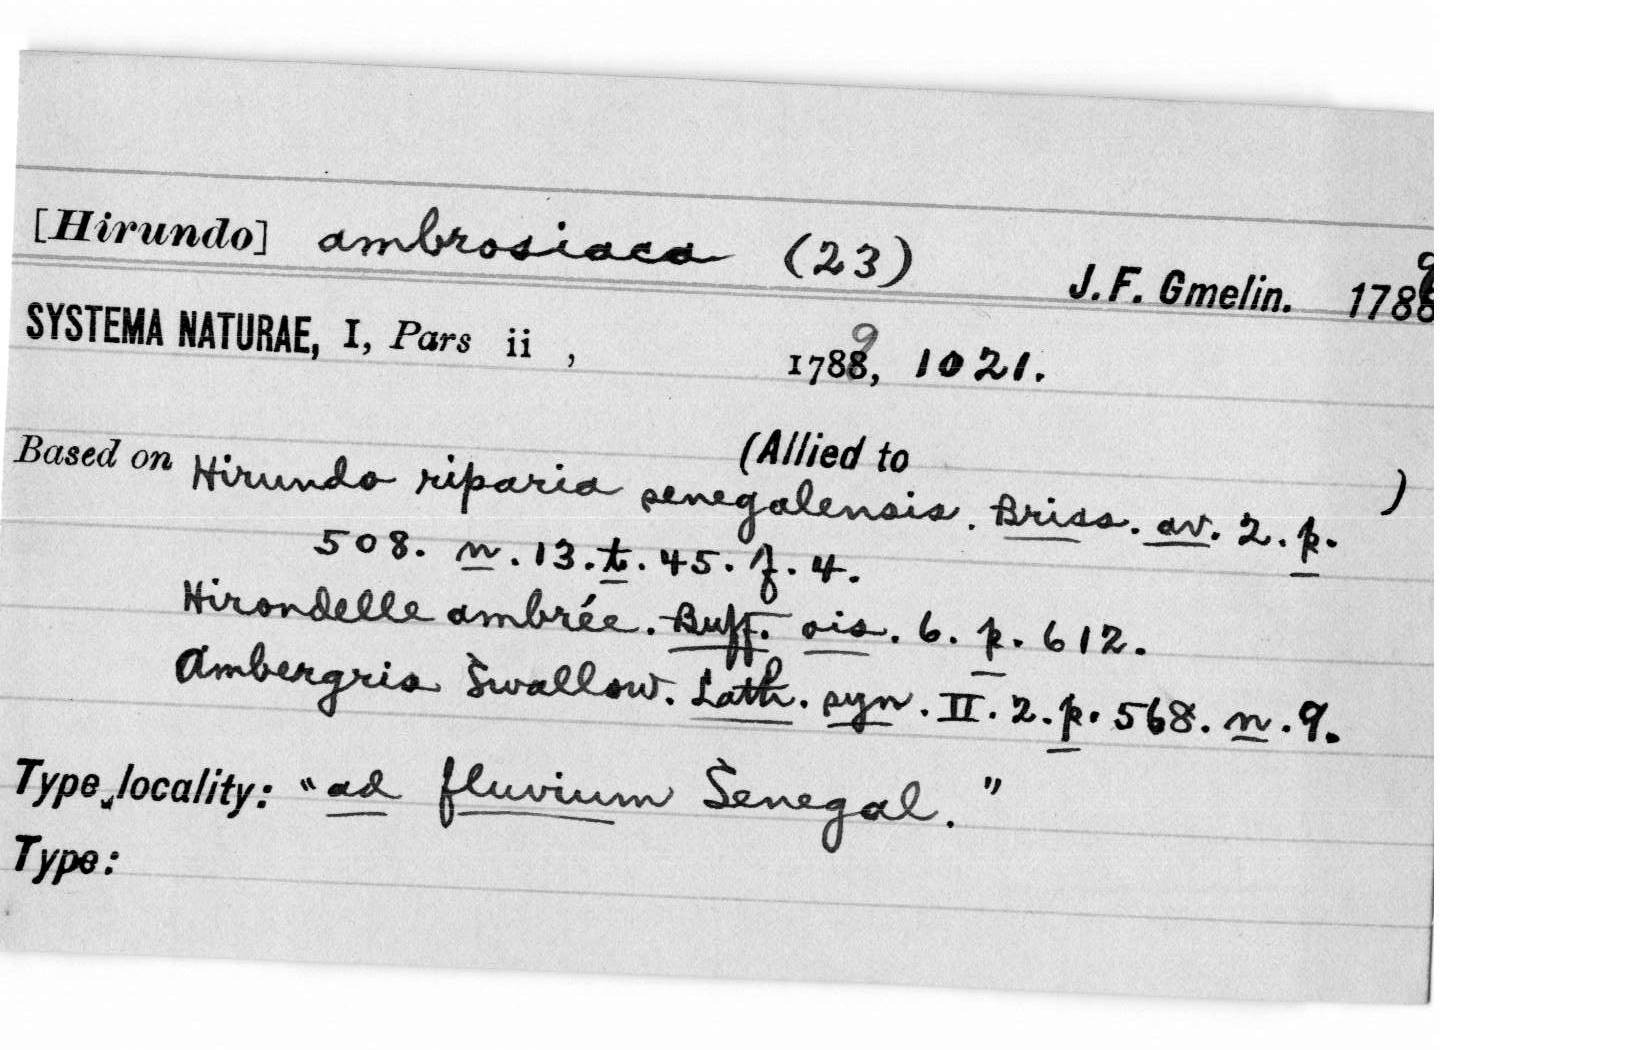 [Hirundo] ambrosiaca (23) J.F. Gmelin. 1789
SYSTEMA NATURAE, I, Pars ii, 1789, 1021.
(Allied to )
Based on Hirundo riparia senegalensis. Briss. av. 2. p.
508. n. 13. t. 45. f. 4.
Hirondelle ambrée. Buff. ois. 6. p. 612.
Ambergris Swallow. Lath. syn. II. 2. p. 568. n. 9.
Type locality: "ad fluvium Senegal."
Type: